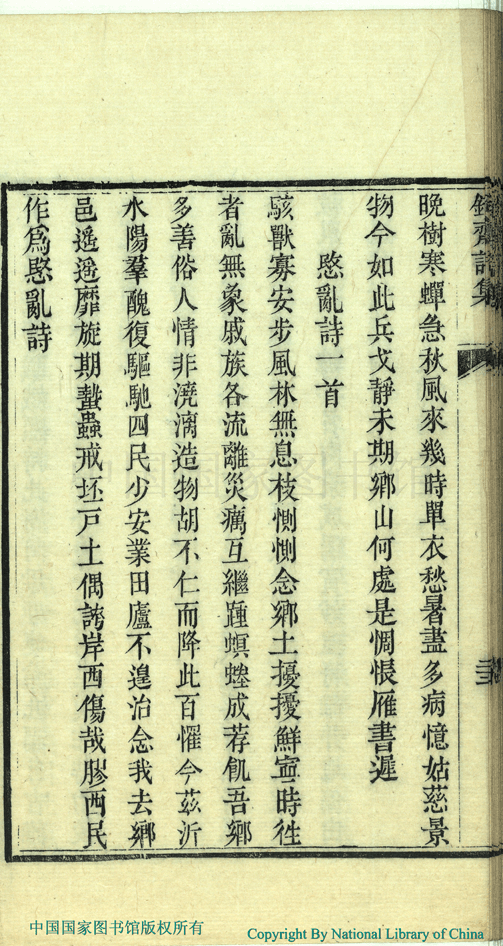 齋詩集
晚樹寒蟬急秋風來幾時單衣愁暑盡多病憶姑慈景
物今如此兵戈靜未期鄉山何處是惆悵雁書遲
愍亂詩一首
駭獸寡安步風林無息枝惻惻念鄉土擾擾鮮寧時徃
者亂無象戚族各流離災癘互繼踵螟螣成荐飢吾鄉
多善俗人情非澆漓造物胡不仁而降此百懼今茲沂
水陽羣醜復驅馳四民少安業田廬不遑治念我去鄉
邑遥遥靡旋期蟄蟲戒坯戸土偶誇岸西傷哉膠西民
作爲愍亂詩
中国国家图书馆
中国国家图书馆版权所有
Copyright By National Library of China